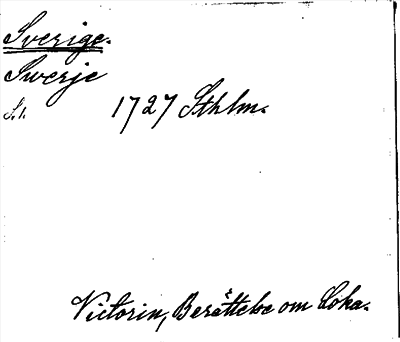 Sverige.
Swerje
S. 1.
1727 Sthlm.
Victorin, Berättelse om Coka.